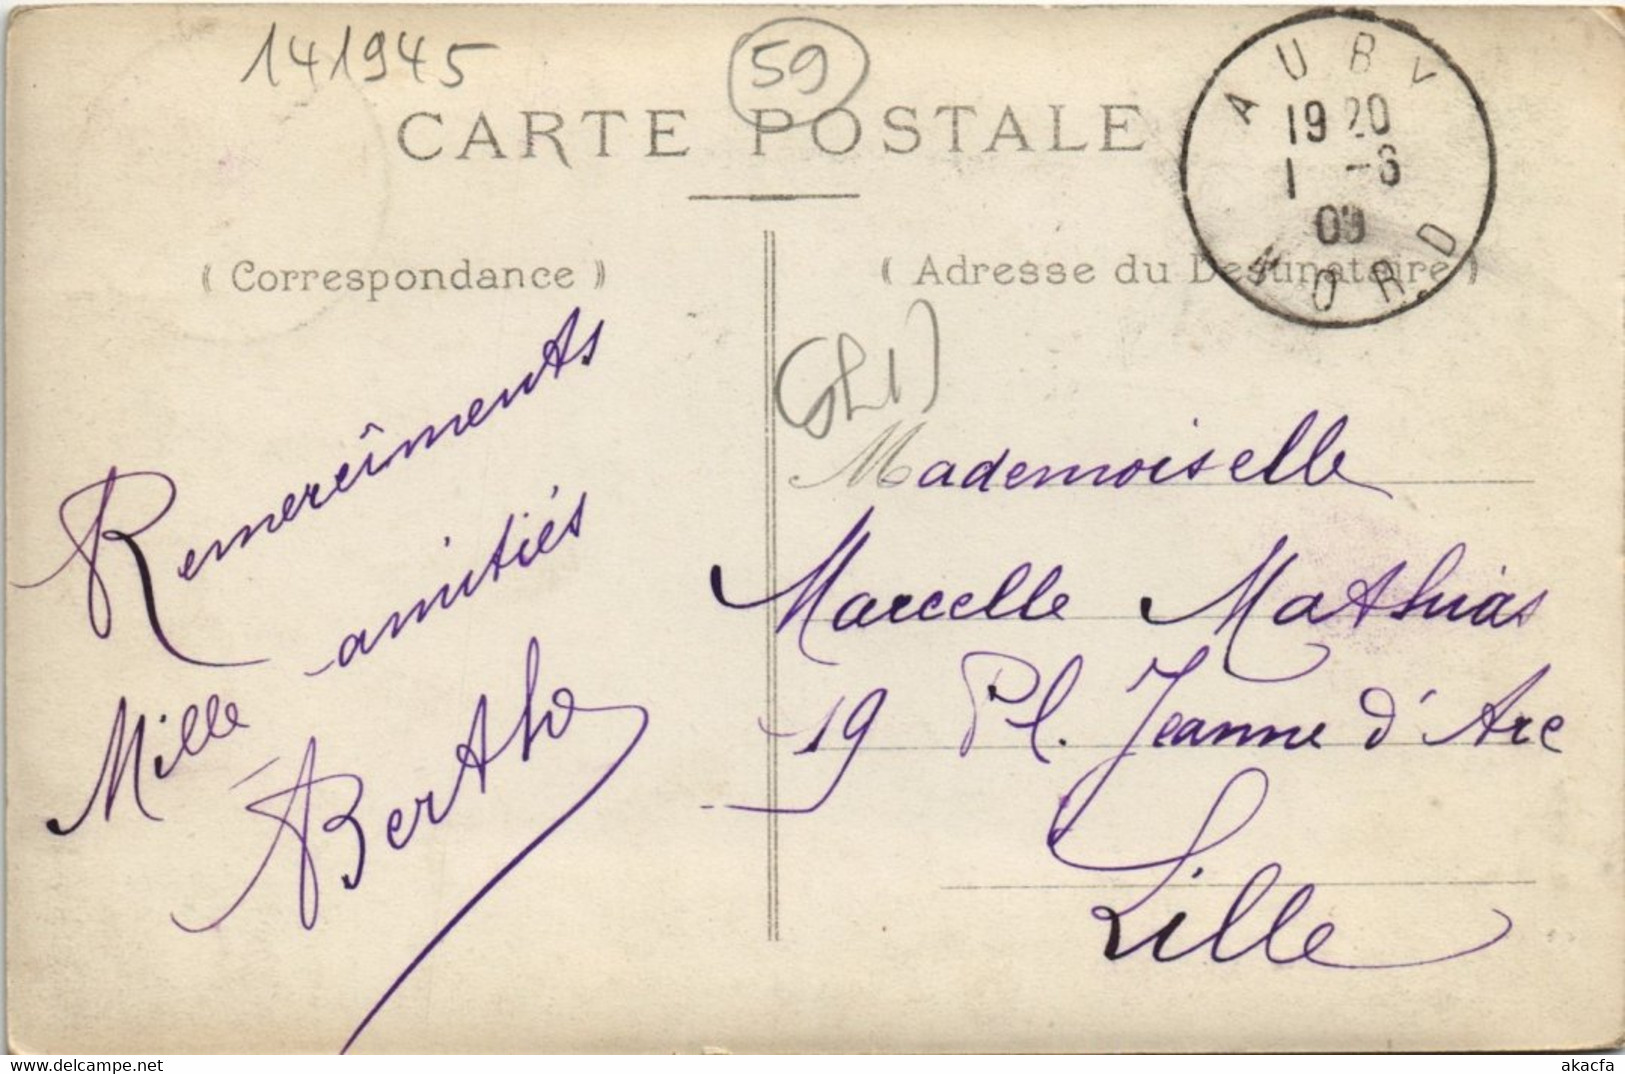 141945
59
CARTE POSTALE
AUBY
19 20
1 -6
09
NORD
( Correspondance )
( Adresse du Destinataire )
Remerciments
Mille amitiés
Berthe
Mademoiselle
Marcelle Mathias
19 Pl. Jeanne d'Arc
Lille
akacfa